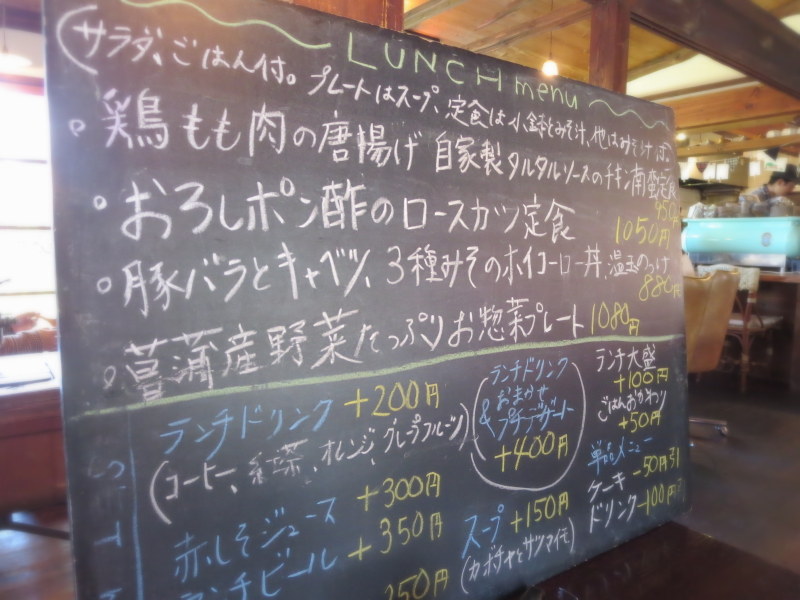 LUNCH menu
(サラダ、ごはん付。プレートはスープ、定食は小鉢とみそ汁、他はみそ汁付。
鶏もも肉の唐揚げ 自家製タルタルソースのチキン南蛮定食
950
おろしポン酢のロースカツ定食
1050円
豚バラとキャベツ、3種みそのホイコーロー丼、温玉のっけ
880円
菖蒲産野菜たっぷりお惣菜プレート 1080円
ランチドリンク +200円
(コーヒー、紅茶、オレンジ、グレープフルーツ)
赤しそジュース +300円
ランチビール +350円
350円
ランチドリンク
& おまかせ
プチデザート
+400円
スープ +150円
(カボチャとサツマイモ)
ランチ大盛
+100円
ごはんおかわり
+50円
単品メニュー
-50円引
ケーキ
ドリンク -100円